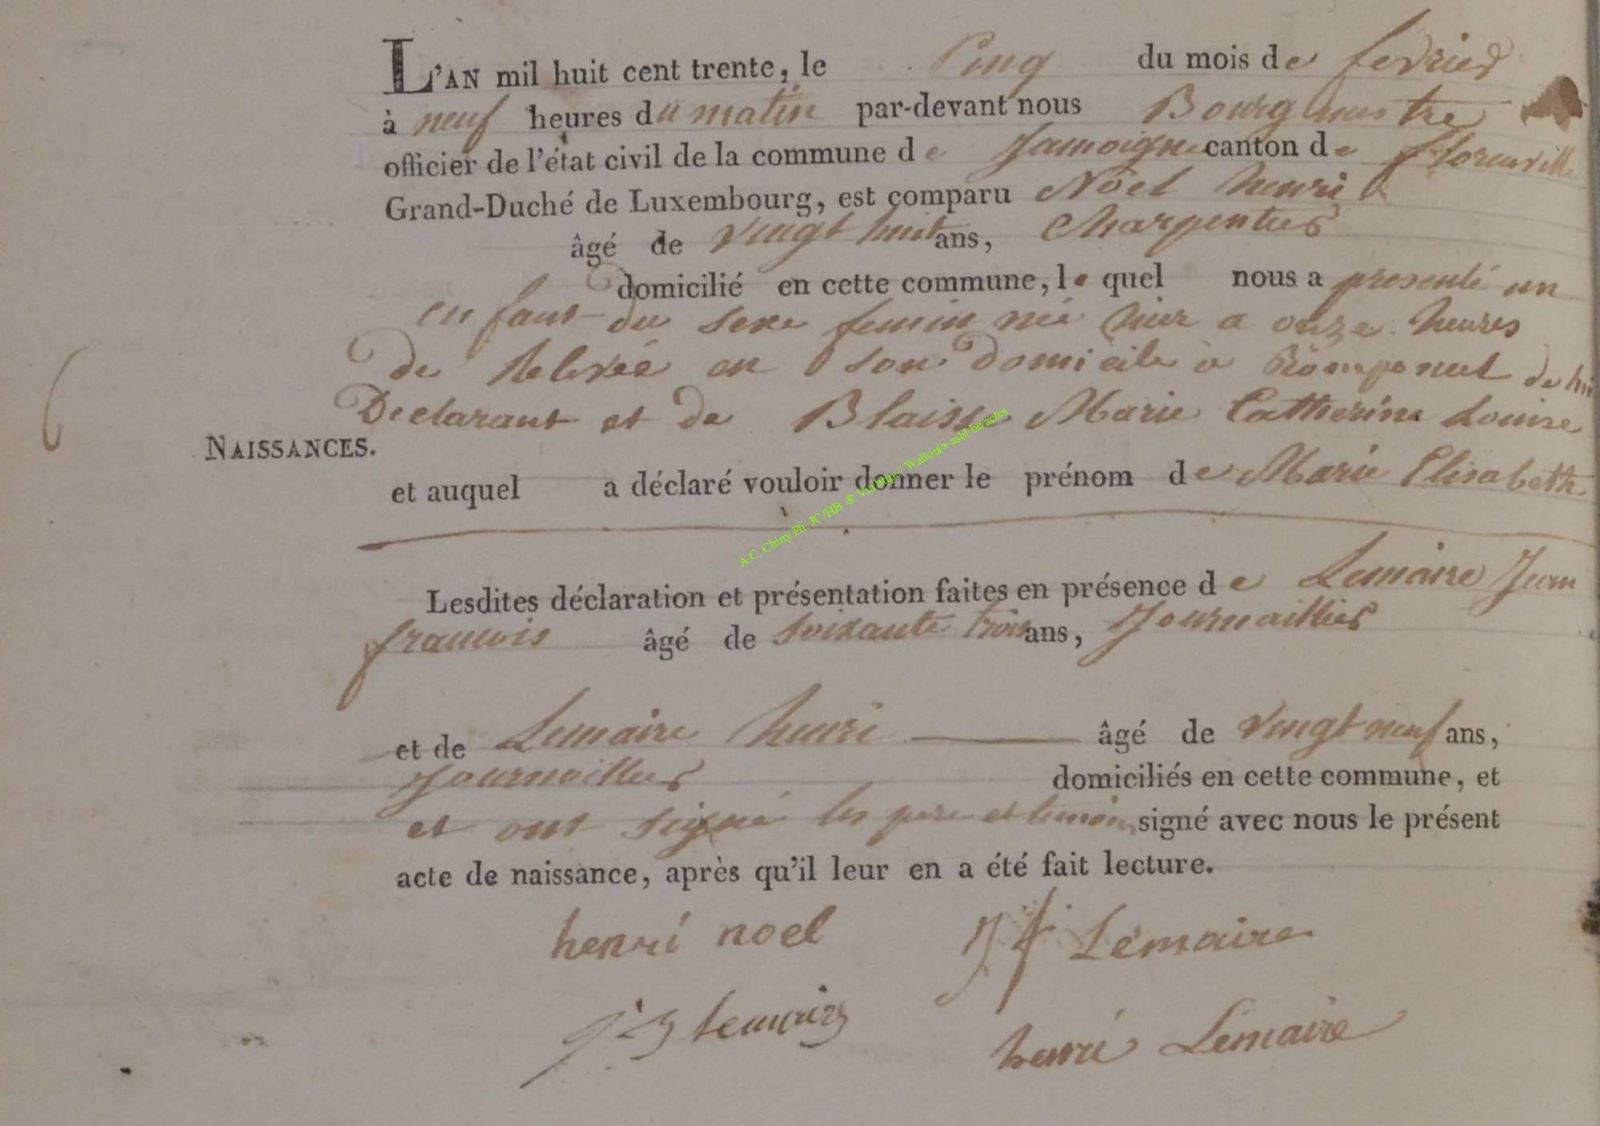 L'AN mil huit cent trente, le Cinq du mois de fevrier
à neuf heures du matin par-devant nous Bourgmestre
officier de l'état civil de la commune de Jamoigne canton de florenville
Grand-Duché de Luxembourg, est comparu Nöel henri
âgé de vingt huit ans, Charpentier
domicilié en cette commune, le quel nous a presenté un
enfant du sexe feminin né hier a onze heures
de Relevée en son domicile à Romponcel de lui
6
Declarant et de Blaise Marie Catherine Louise
NAISSANCES.
et auquel a déclaré vouloir donner le prénom de Marie Elisabeth
A.C. Chiny Ph. JC/HB ®
Lesdites déclaration et présentation faites en présence de Lemaire Jean
francois âgé de soixante trois ans, Journaillier
et de Lemaire henri âgé de vingt neuf ans,
Journaillier domiciliés en cette commune, et
et ont signé les pere et temoins signé avec nous le présent
acte de naissance, après qu'il leur en a été fait lecture.
henri noel Jf Lemaire
henri Lemaire